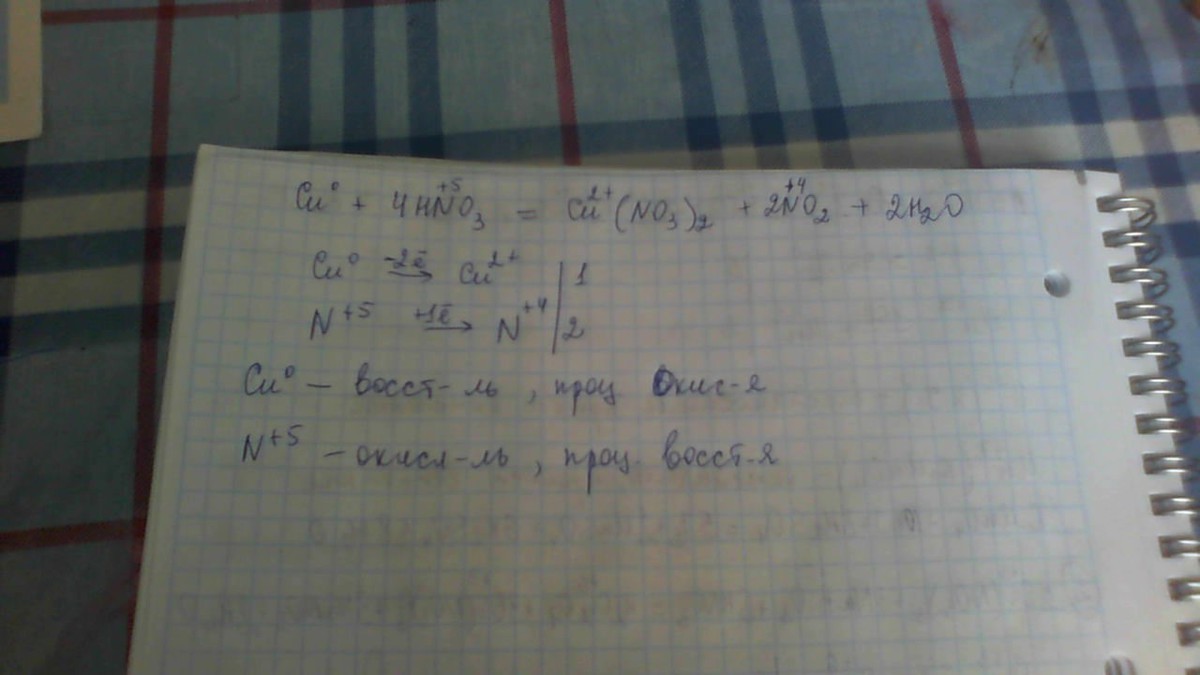 Cu⁰ + 4HN⁺⁵O₃ = Cu²⁺(NO₃)₂ + 2N⁺⁴O₂ + 2H₂O
Cu⁰ -2ē → Cu²⁺ | 1
N⁺⁵ +1ē → N⁺⁴ | 2
Cu⁰ – восст-ль, проц Окис-я
N⁺⁵ – окисл-ль, проц. восст-я